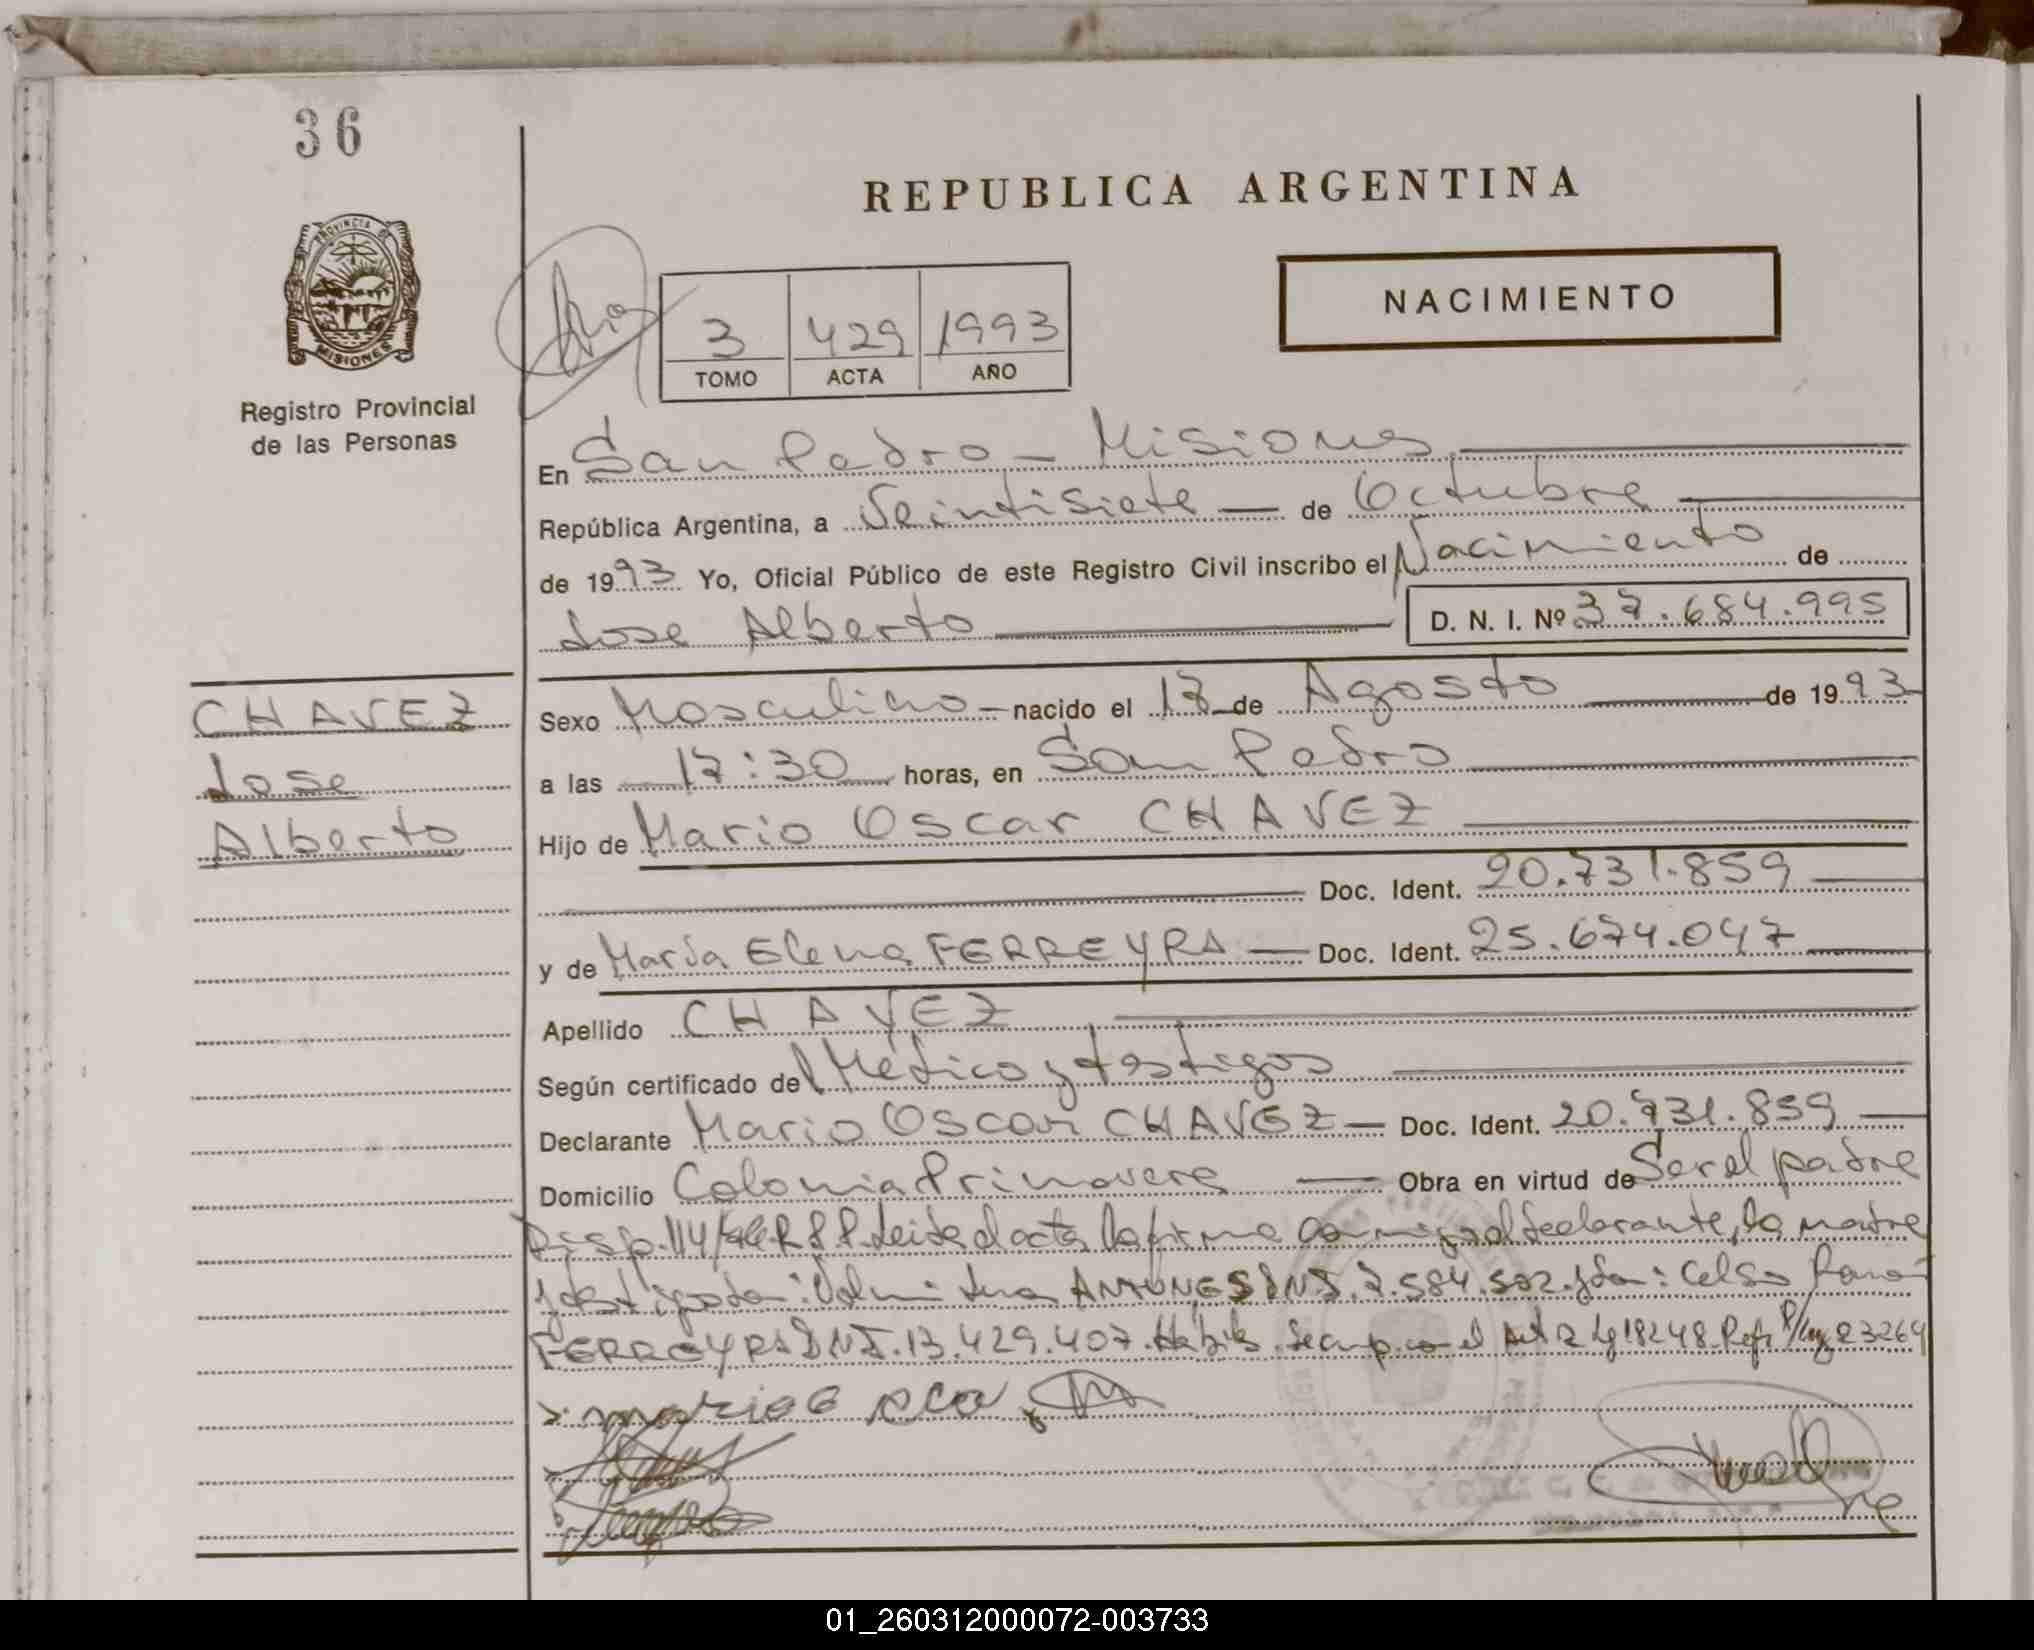 36
REPUBLICA ARGENTINA
PROVINCIA DE
MISIONES
Registro Provincial
de las Personas
3 429 1993
TOMO ACTA AÑO
NACIMIENTO
En San Pedro - Misiones
República Argentina, a Veintisiete — de Octubre
de 1993 Yo, Oficial Público de este Registro Civil inscribo el Nacimiento de
Jose Alberto D. N. I. Nº 37.684.995
CHAVEZ
Jose
Alberto
Sexo Masculino — nacido el 17 de Agosto de 1993
a las 17:30 horas, en San Pedro
Hijo de Mario Oscar CHAVEZ
Doc. Ident. 20.731.859
y de María Elena FERREYRA — Doc. Ident. 25.674.047
Apellido CHAVEZ
Según certificado de Médico y testigos
Declarante Mario Oscar CHAVEZ — Doc. Ident. 20.731.859
Domicilio Colonia Primavera — Obra en virtud de Ser el padre
Disp. 114/ R P P. Leida el acta la firma conmigo el declarante, la madre
y testigos don: ANTUNES DNI. 7.584.502 y don: Celso Ramón
FERREYRA DNI. 13.429.407. Habils. Se cump. con el Art 2 Ley 18248. Refr P/ley 23264